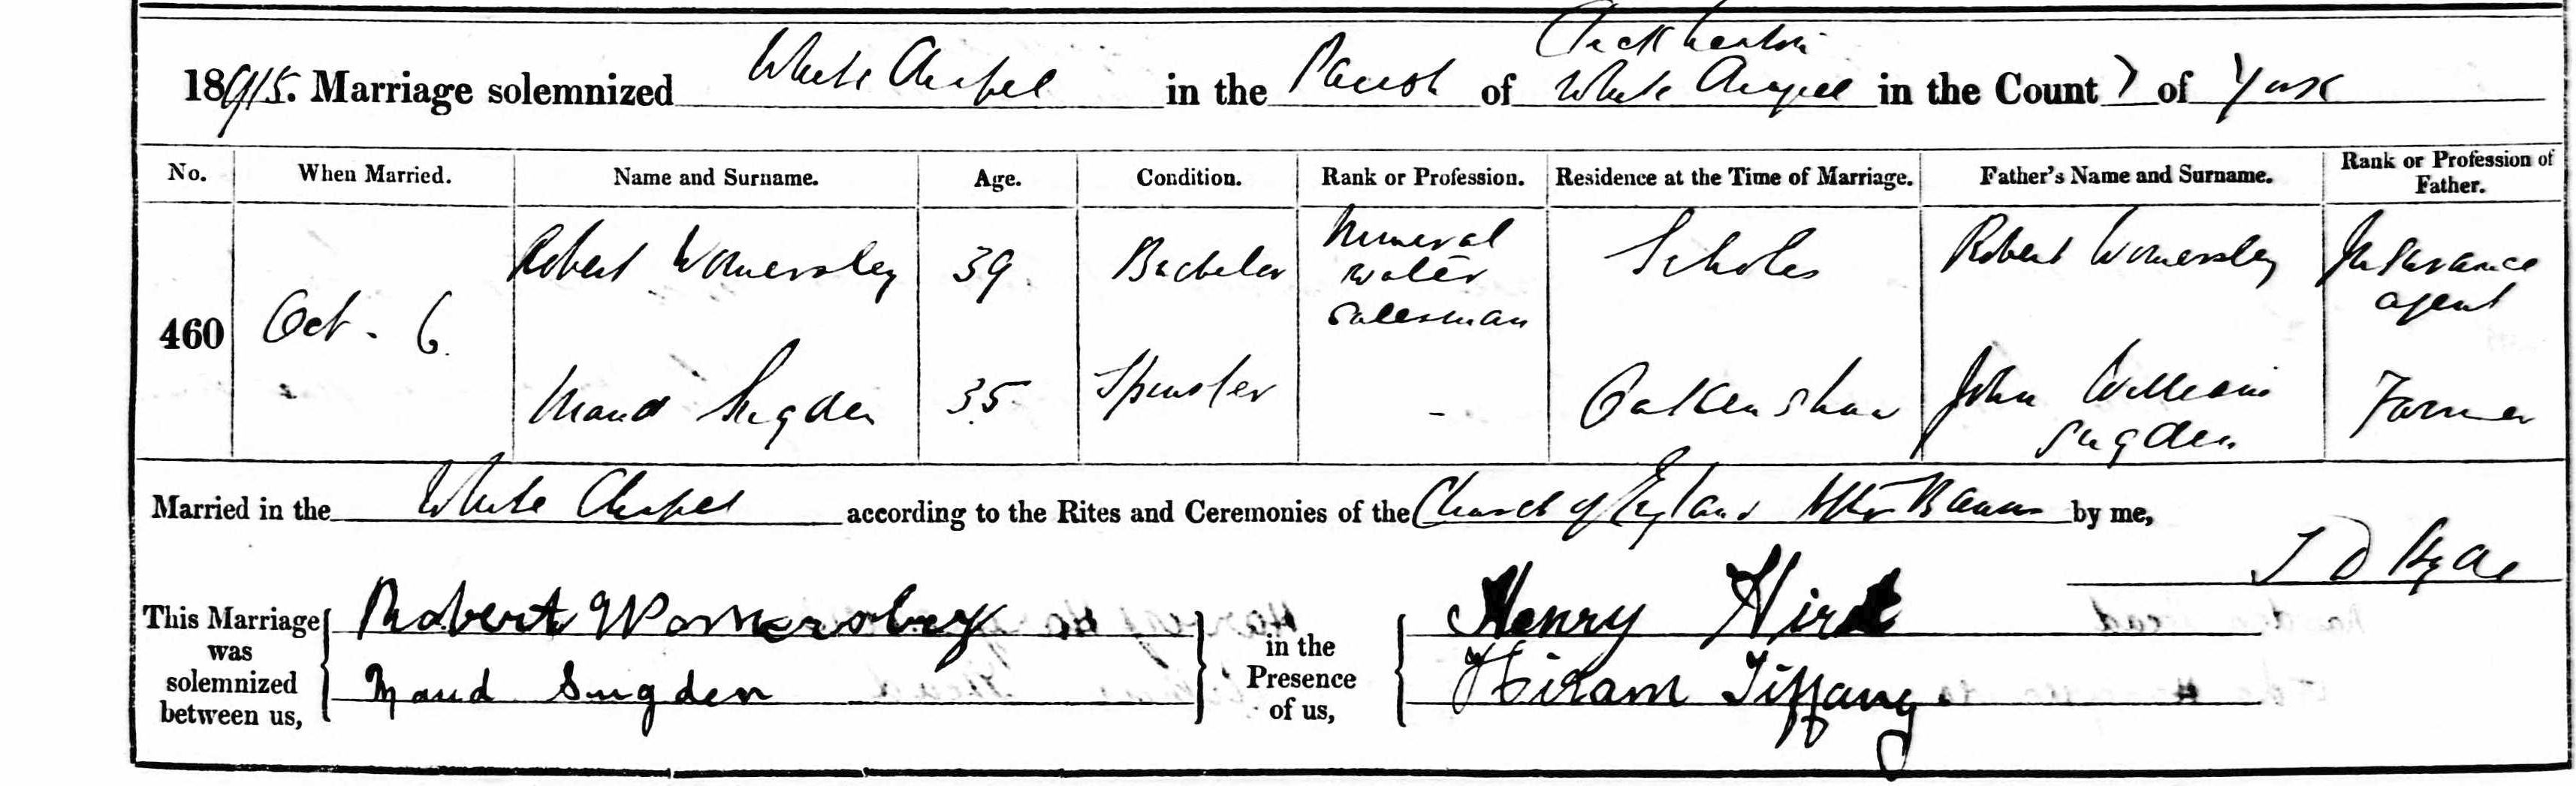 Cleckheaton
1915. Marriage solemnized White Chapel in the Parish of White Chapel in the County of York
No. When Married. Name and Surname. Age. Condition. Rank or Profession. Residence at the Time of Marriage. Father's Name and Surname. Rank or Profession of Father.
460 Oct. 6. Robert Womersley 39 Bachelor Mineral water salesman Scholes Robert Womersley Insurance agent
Maud Sugden 35 Spinster - Oakenshaw John William Sugden Farmer
Married in the White Chapel according to the Rites and Ceremonies of the Church of England After Banns by me,
This Marriage was solemnized between us, Robert Womersley in the Presence of us, Henry Hirst
Maud Sugden Hiram Tiffany